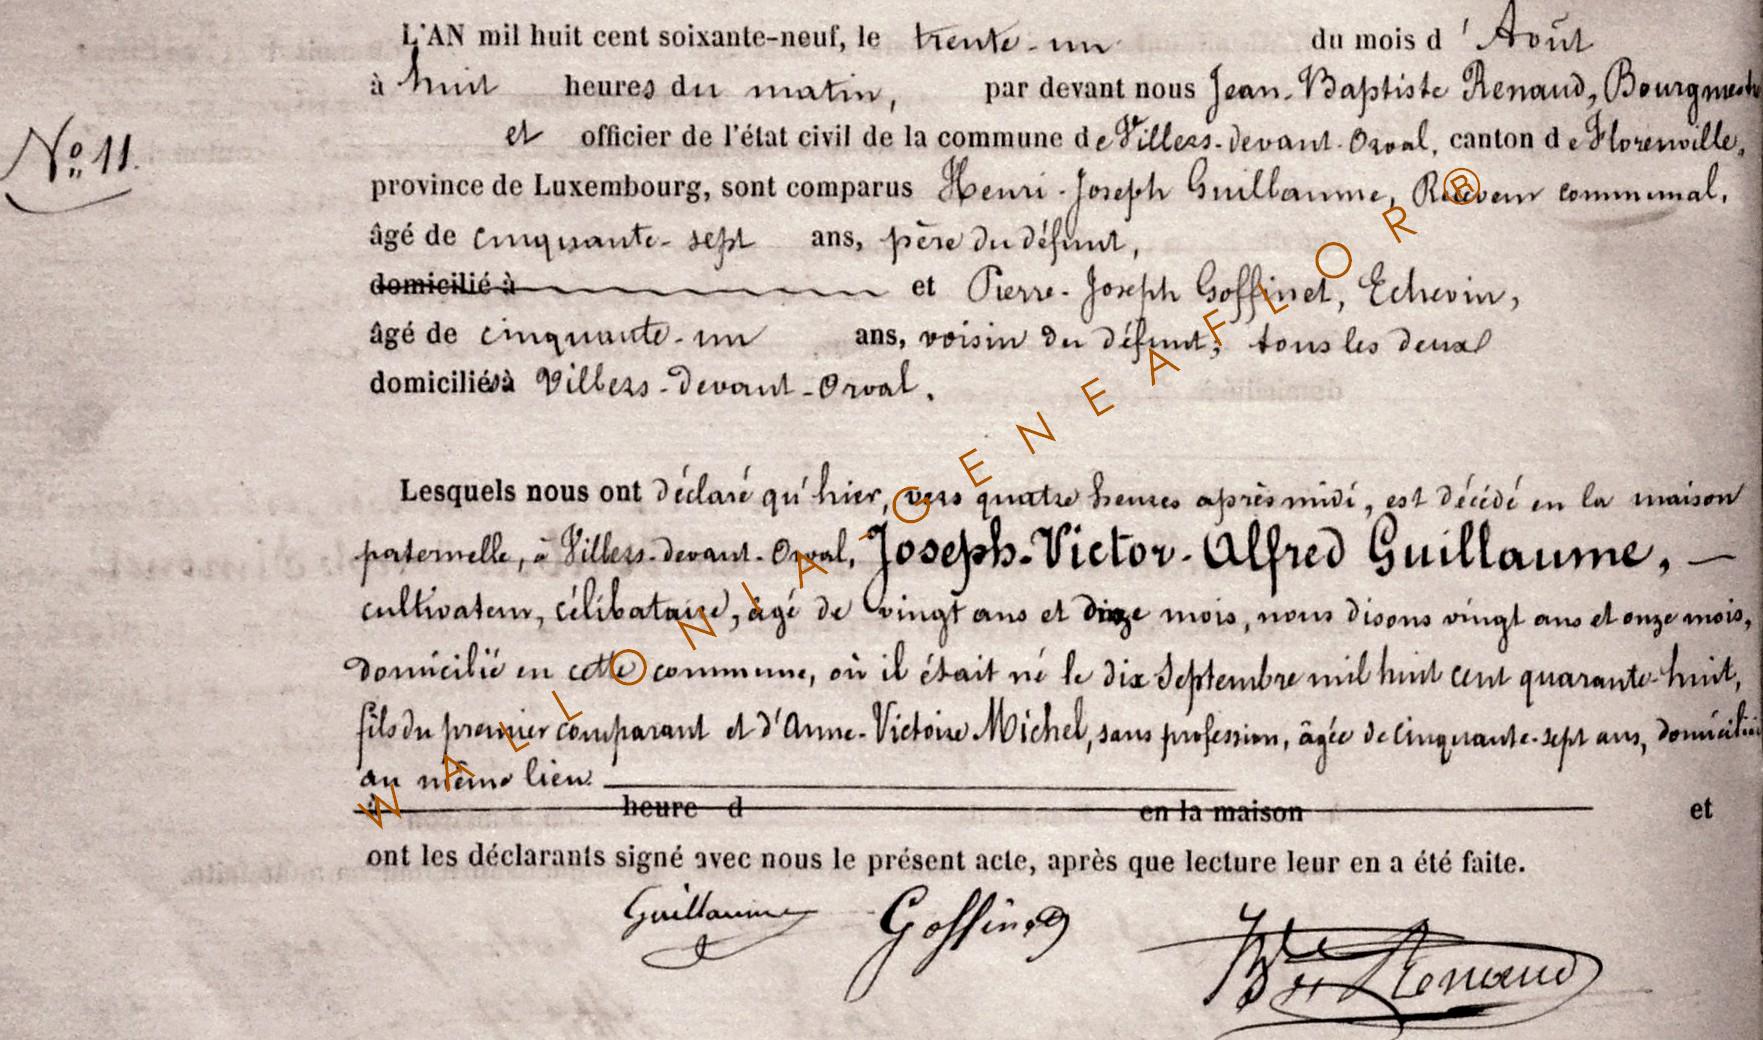 L'AN mil huit cent soixante-neuf, le trente-un du mois d'Août
à huit heures du matin, par devant nous Jean-Baptiste Renaud, Bourgmestre
et officier de l'état civil de la commune de Villers-devant-Orval, canton de Florenville,
N° 11.
province de Luxembourg, sont comparus Henri-Joseph Guillaume, Receveur communal,
âgé de cinquante-sept ans, père du défunt,
domicilié à et Pierre-Joseph Goffinet, Echevin,
âgé de cinquante-un ans, voisin du défunt, tous les deux
domiciliés à Villers-devant-Orval.
Lesquels nous ont déclaré qu'hier, vers quatre heures après midi, est décédé en la maison
paternelle, à Villers-devant-Orval, Joseph-Victor-Alfred Guillaume, —
cultivateur, célibataire, âgé de vingt ans et dix mois, nous disons vingt ans et onze mois,
domicilié en cette commune, où il était né le dix Septembre mil huit cent quarante-huit,
fils du premier comparant et d'Anne-Victoire Michel, sans profession, âgée de cinquante-sept ans, domiciliée
au même lieu.
à heure d en la maison et
ont les déclarants signé avec nous le présent acte, après que lecture leur en a été faite.
Guillaume Goffinet Bte Renaud
WALLONIA-GENEAFLOR®